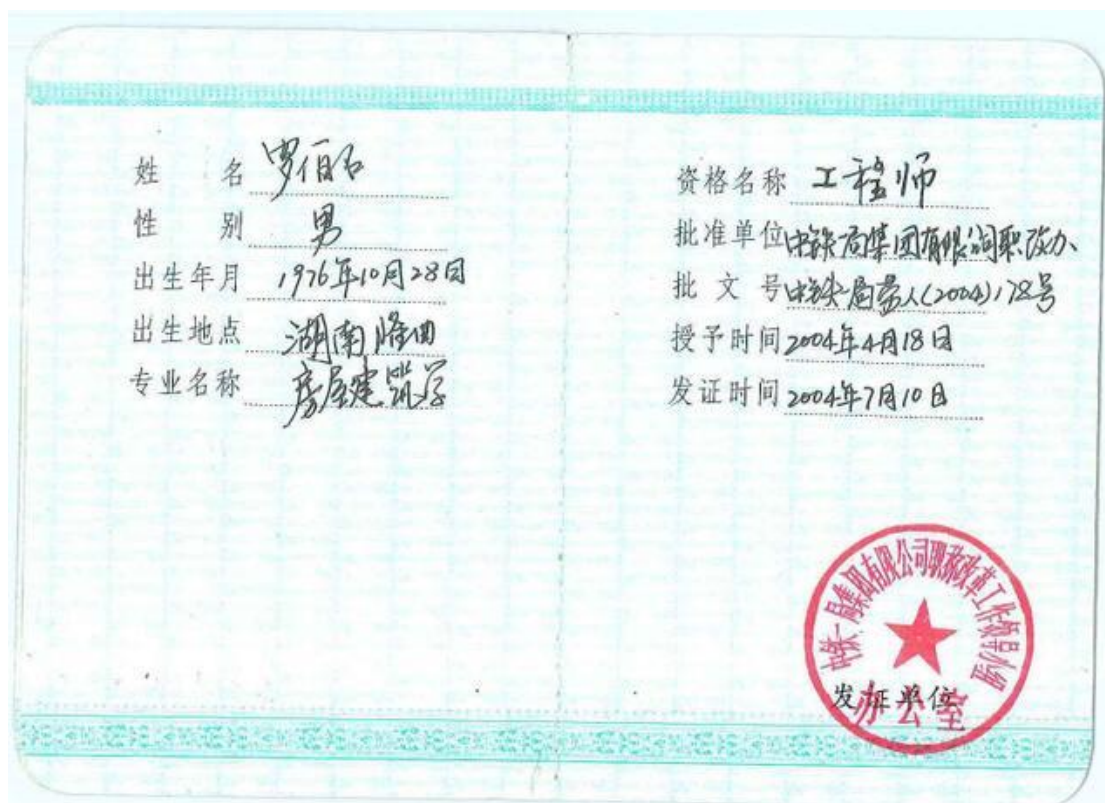 姓 名 罗伯石
性 别 男
出生年月 1976年10月28日
出生地点 湖南隆回
专业名称 房屋建筑学
资格名称 工程师
批准单位 中铁一局集团有限公司职改办
批文号 (2004)178号
授予时间 2004年4月18日
发证时间 2004年7月10日
中铁一局集团有限公司职称改革工作领导小组
发证单位
办公室